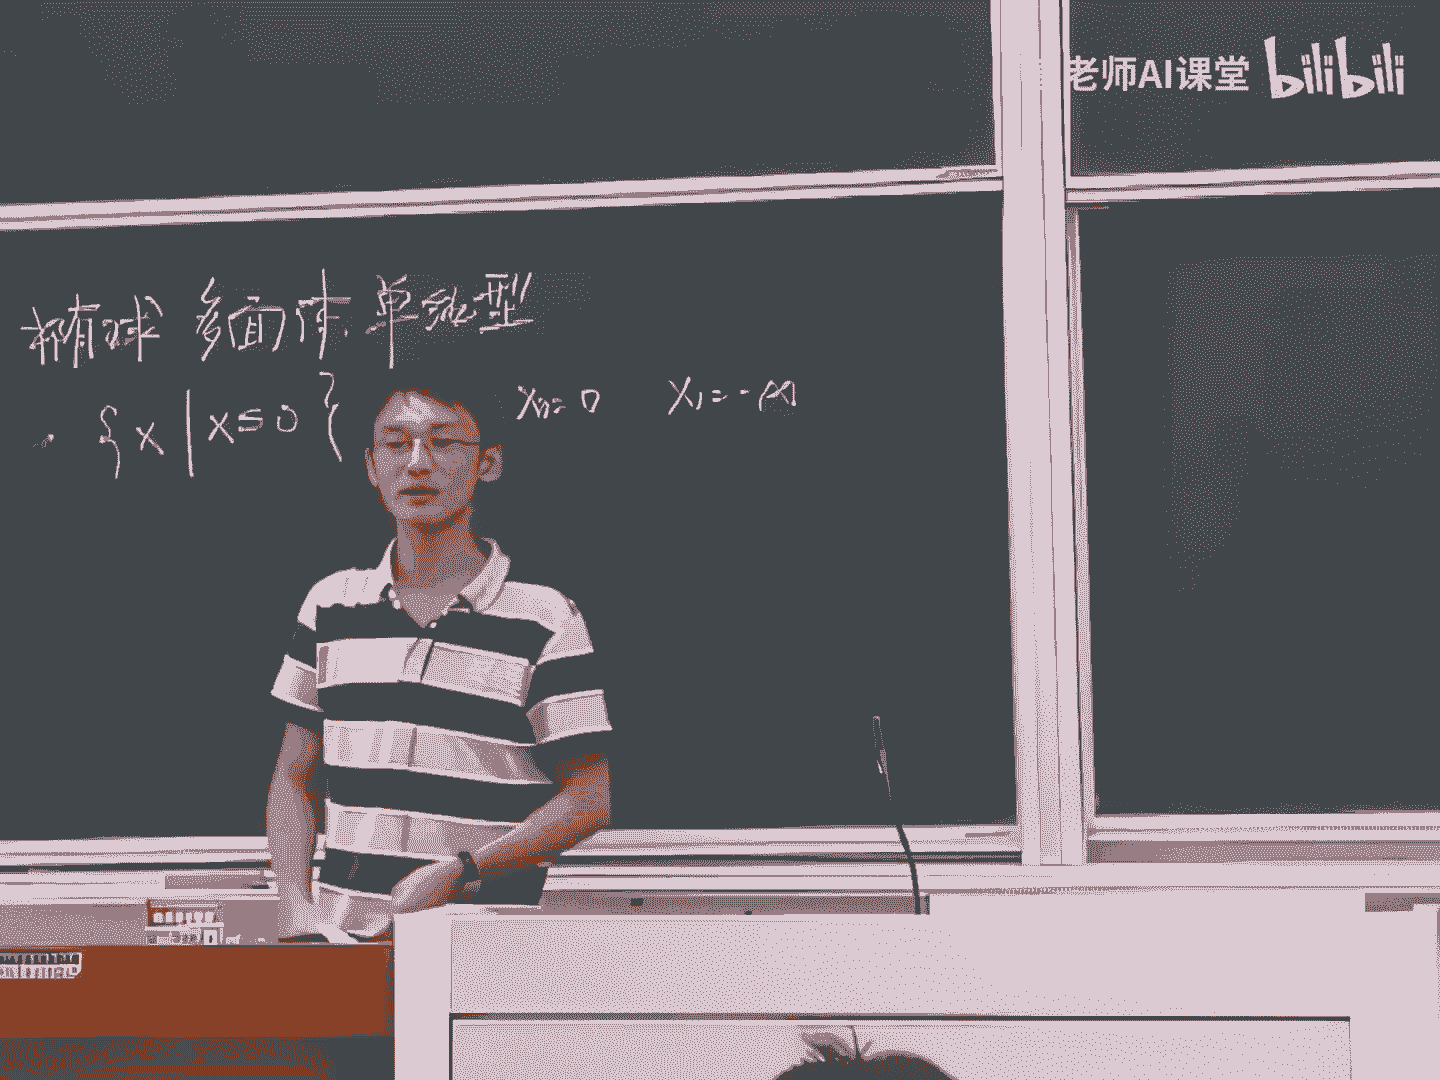 老师AI课堂 bilibili
椭球 多面体 单纯型
{x | x≤0} x₀=0 x₁=-∞